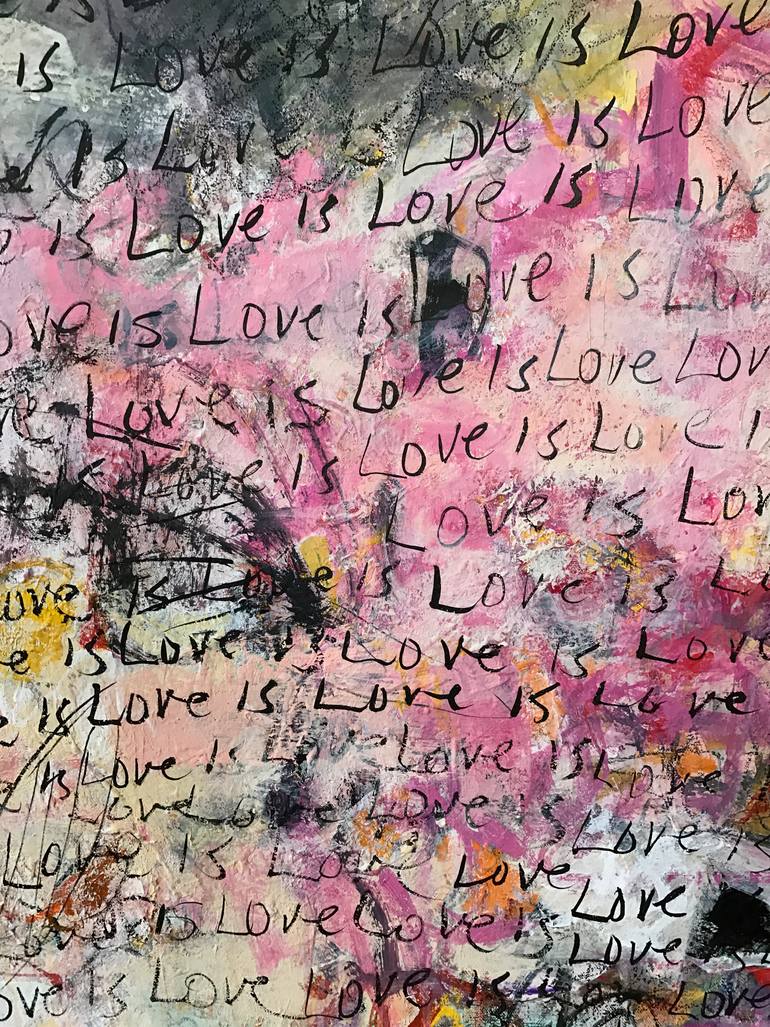 is Love is Love is Love
is Love is Love is Love
is Love is Love is Love
ove is Love is Love is Lov
Love is Love is Love Lov
is Love is Love is Love i
Love is Lov
Love is Love is Love is L
e is Love is Love is Love
is Love is Love is Love
is Love is Love Love is Love
Love Love is Love is
Love is Love Love
is Love Love is Love
Love is
ove is Love Love is Love